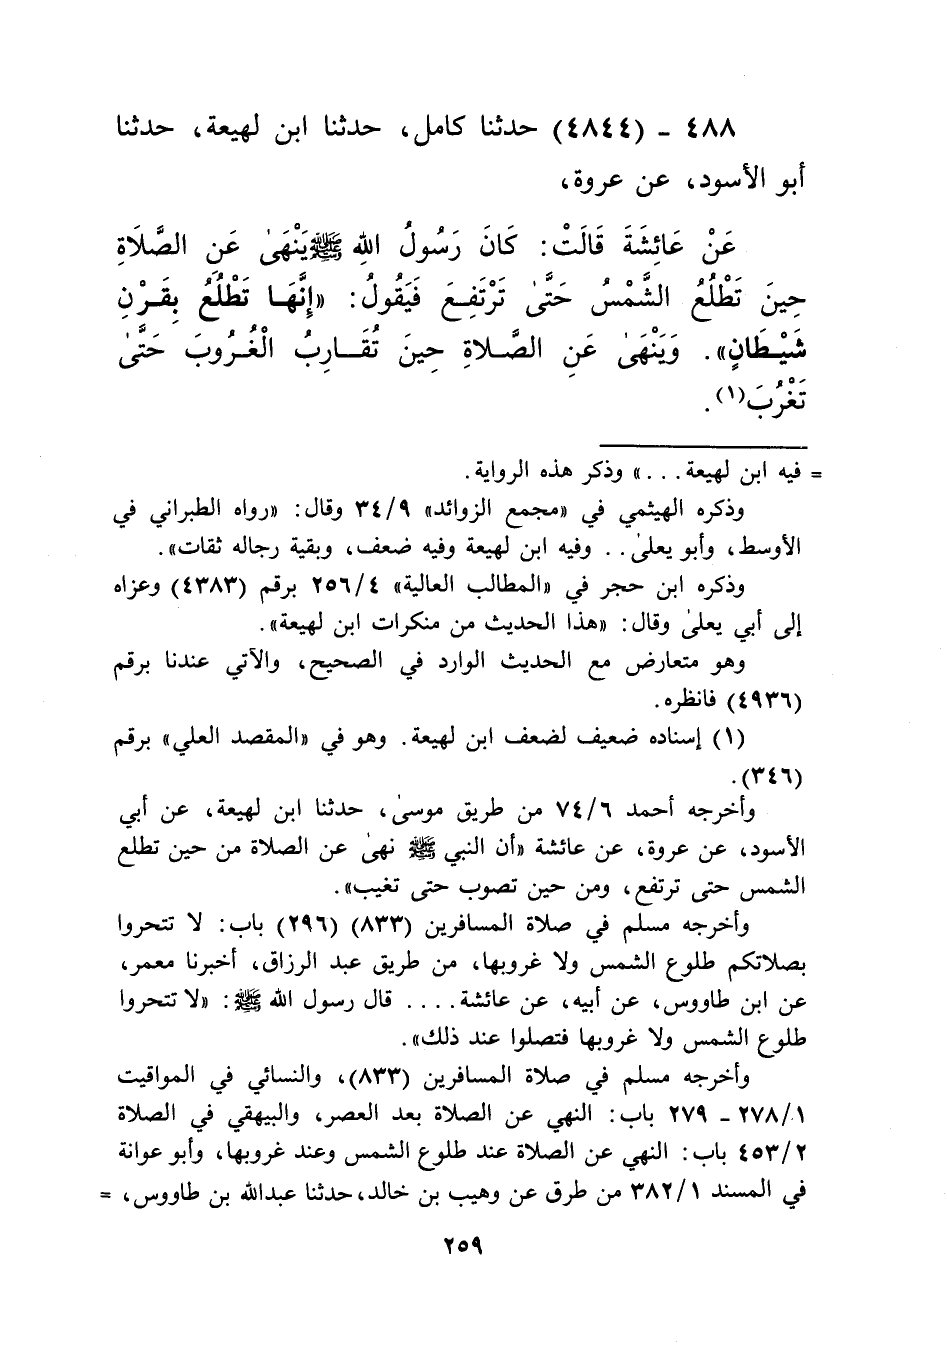 ٤٨٨ - (٤٨٤٤) حدثنا كامل، حدثنا ابن لهيعة، حدثنا
أبو الأسود، عن عروة،
عَنْ عَائِشَةَ قَالَتْ: كَانَ رَسُولُ اللهِ ﷺ يَنْهَىٰ عَنِ الصَّلَاةِ
حِينَ تَطْلُعُ الشَّمْسُ حَتَّىٰ تَرْتَفِعَ فَيَقُولُ: «إِنَّهَا تَطْلُعُ بِقَرْنِ
شَيْطَانٍ». وَيَنْهَىٰ عَنِ الصَّلاةِ حِينَ تُقَارِبُ الْغُرُوبَ حَتَّىٰ
تَغْرُبَ(١).
= فيه ابن لهيعة...» وذكر هذه الرواية.
وذكره الهيثمي في «مجمع الزوائد» ٣٤/٩ وقال: «رواه الطبراني في
الأوسط، وأبو يعلىٰ.. وفيه ابن لهيعة وفيه ضعف، وبقية رجاله ثقات».
وذكره ابن حجر في «المطالب العالية» ٢٥٦/٤ برقم (٤٣٨٣) وعزاه
إلى أبي يعلىٰ وقال: «هذا الحديث من منكرات ابن لهيعة».
وهو متعارض مع الحديث الوارد في الصحيح، والآتي عندنا برقم
(٤٩٣٦) فانظره.
(١) إسناده ضعيف لضعف ابن لهيعة. وهو في «المقصد العلي» برقم
(٣٤٦).
وأخرجه أحمد ٧٤/٦ من طريق موسىٰ، حدثنا ابن لهيعة، عن أبي
الأسود، عن عروة، عن عائشة «أن النبي ﷺ نهىٰ عن الصلاة من حين تطلع
الشمس حتى ترتفع، ومن حين تصوب حتى تغيب».
وأخرجه مسلم في صلاة المسافرين (٨٣٣) (٢٩٦) باب: لا تتحروا
بصلاتكم طلوع الشمس ولا غروبها، من طريق عبد الرزاق، أخبرنا معمر،
عن ابن طاووس، عن أبيه، عن عائشة.... قال رسول الله ﷺ: «لا تتحروا
طلوع الشمس ولا غروبها فتصلوا عند ذلك».
وأخرجه مسلم في صلاة المسافرين (٨٣٣)، والنسائي في المواقيت
٢٧٨/١ - ٢٧٩ باب: النهي عن الصلاة بعد العصر، والبيهقي في الصلاة
٤٥٣/٢ باب: النهي عن الصلاة عند طلوع الشمس وعند غروبها، وأبو عوانة
في المسند ٣٨٢/١ من طرق عن وهيب بن خالد، حدثنا عبدالله بن طاووس، =
٢٥٩